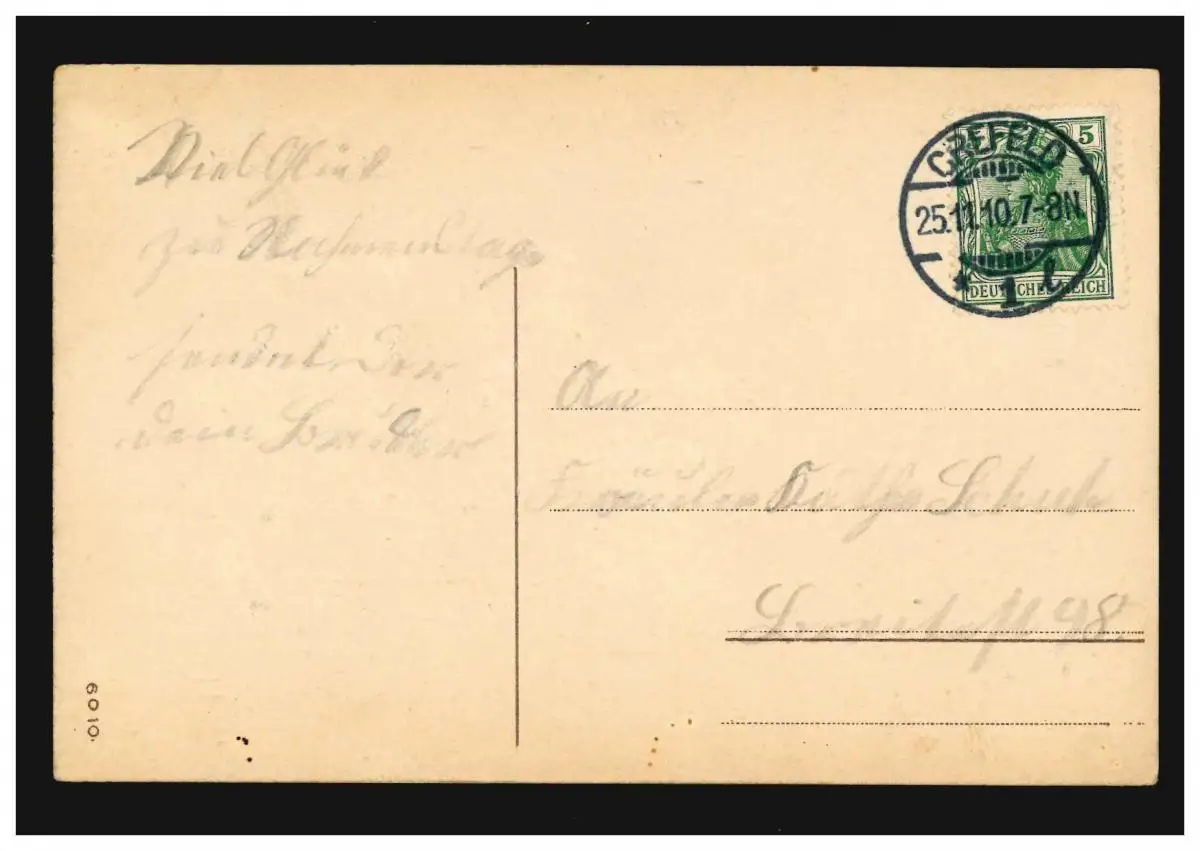 Viel Glück
zum Nahmenstag
sendet Der
dein Bruder
CREFELD
25.11.10.7-8N
* 1 l
5
DEUTSCHES REICH
An
Fräulein Käthe Schuh
Breitestr 98.
6010.